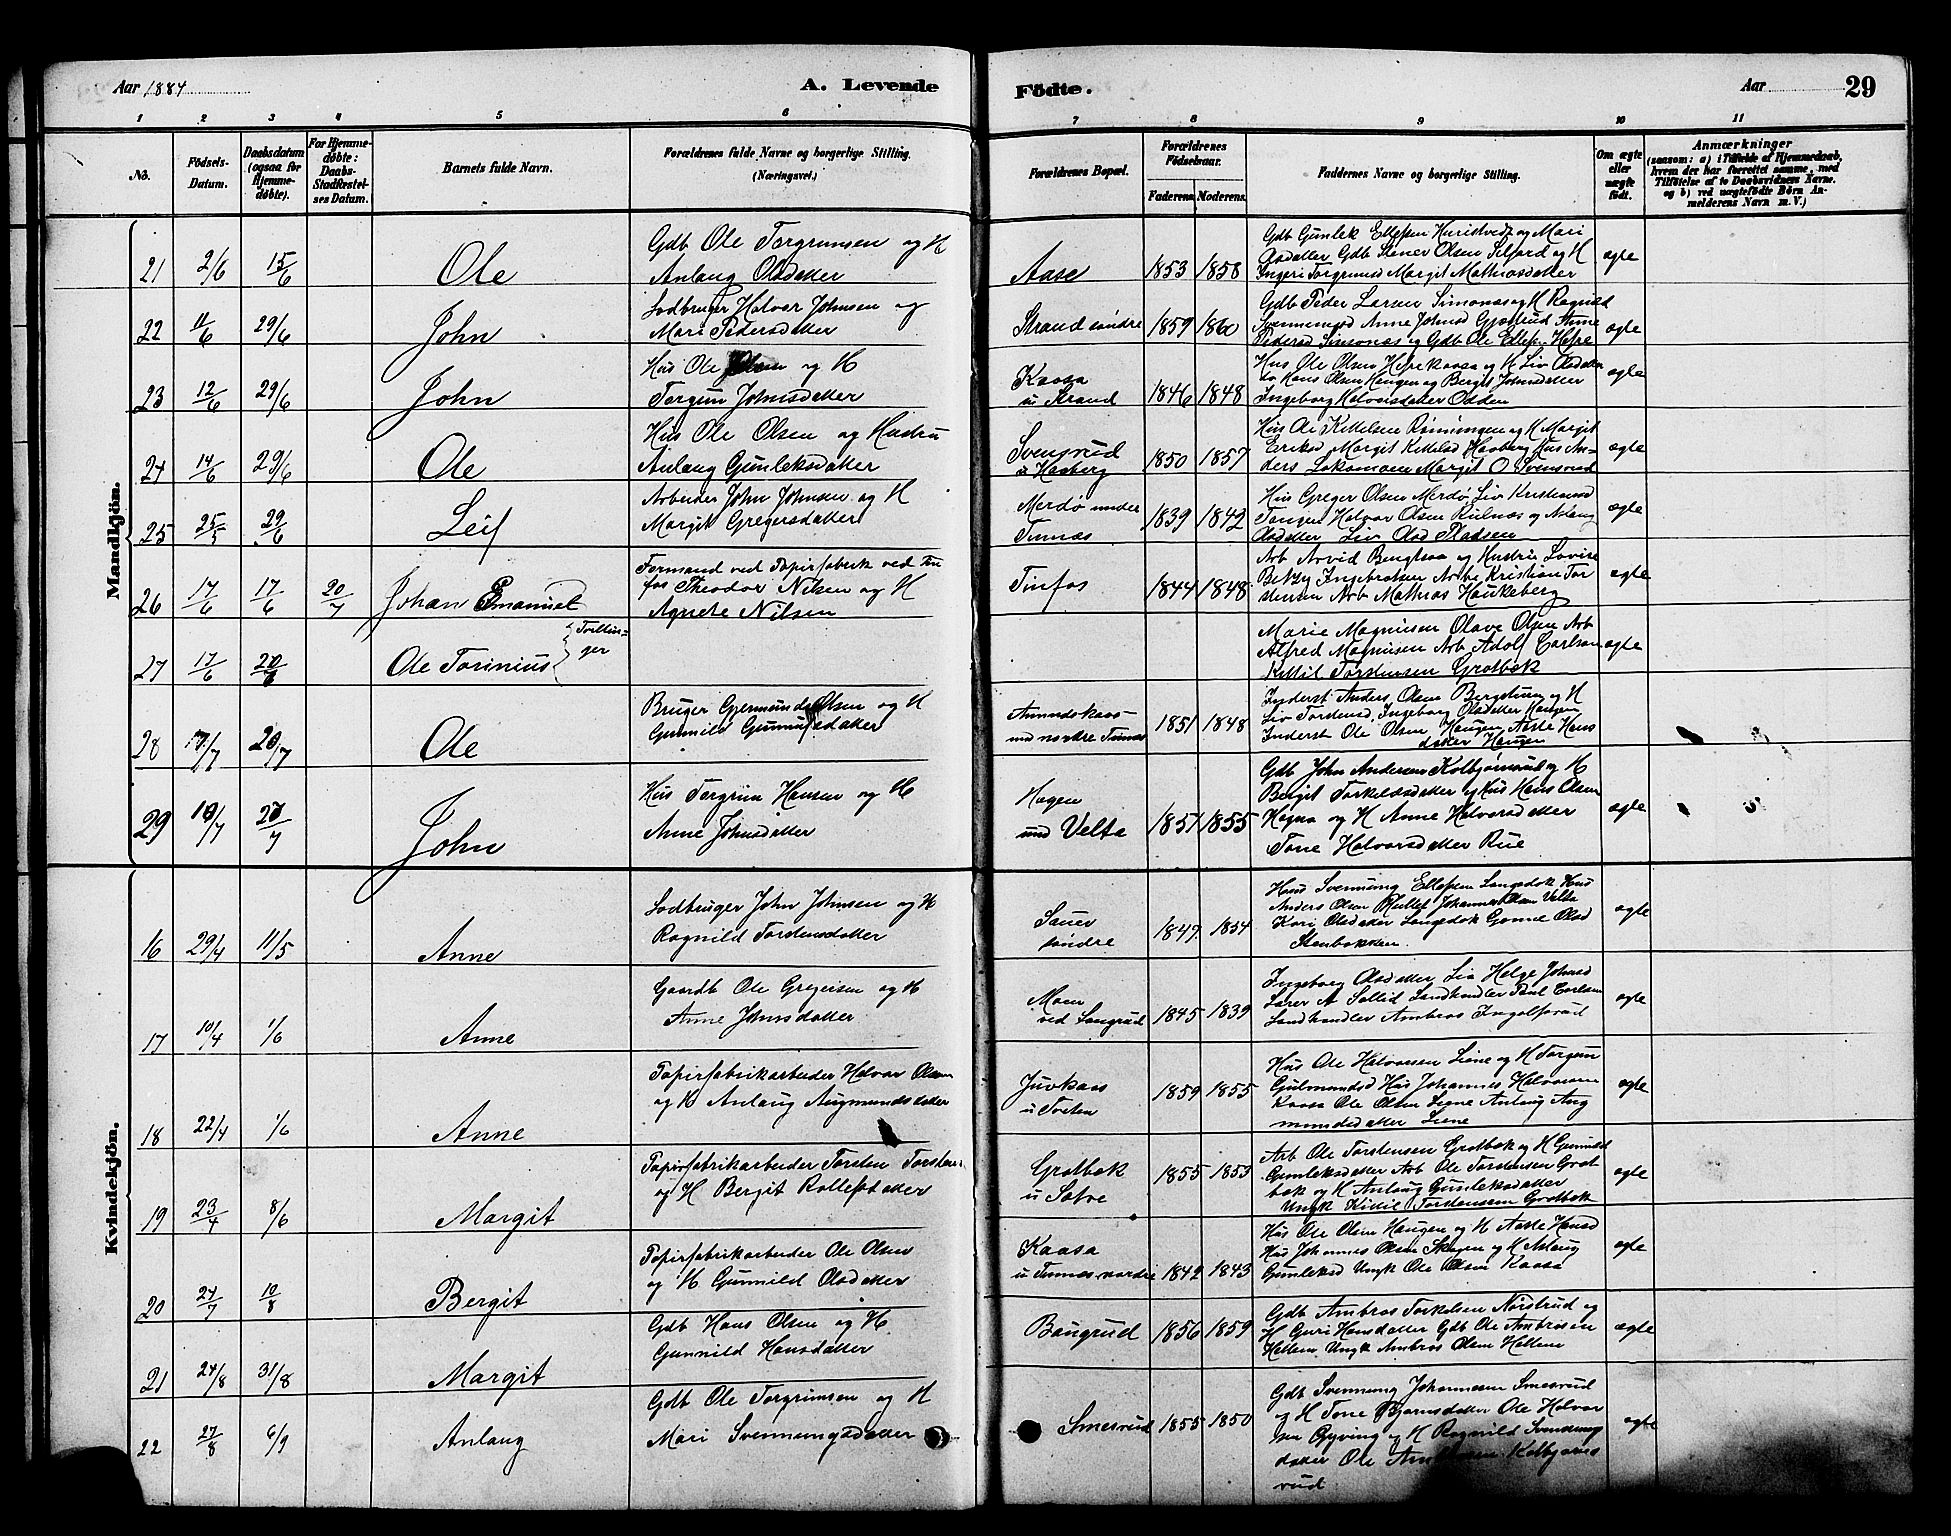 Aar 1884
A. Levende
Födte.
Aar
29
1 2 3 4 5 6 7 8 9 10 11
No.
Födsels-Datum.
Daabsdatum (ogsaa for Hjemmedöbte).
For Hjemmedöbte: Daabs-Stadfæstelses Datum.
Barnets fulde Navn.
Forældrenes fulde Navne og borgerlige Stilling. (Næringsvei.)
Forældrenes Bopæl.
Forældrenes Födselsaar.
Faderens. Moderens.
Faddernes Navne og borgerlige Stilling.
Om ægte eller uægte födt.
Anmærkninger
(saasom: a) i Tilfælde af Hjemmedaab, hvem der har forrettet samme, med Tilföielse af to Daabsvidners Navne. og b) ved uægtefödte Börn Anmelderens Navn m. V.)
Mandkjön.
21 2/6 15/6 Ole
Gdb Ole Torgrimsen og H
Anlaug Olsdatter
Aase 1853 1858
Gdb Gunlek Ellefsen og Mari
Olsdatter Gdb Stener Olsen og H
Ingeri Torgrimsd Margit Mathiasdatter
ægte
22 11/6 29/6 John
Lodbruger Halvor Johnsen og
Mari Pedersdatter
Strand söndre 1859 1860
Gdb Peder Larsen Simonæs og H Ragnild
Anne Johnsd Anne
Pedersd Simonæs og Gdb Ole Ellefsen
ægte
23 12/6 29/6 John
Hus Ole og H
Torgun Johnsdatter
Kaasa
u Strand 1846 1848
Hus Ole Olsen og H Liv Olsdatter
Hans Olsen Haugen og Bergit Johnsdatter
Ingeborg Halvorsdatter Odden
ægte
24 14/6 29/6 Ole
Hus Ole Olsen og Hustru
Anlaug Gunleksdatter
Svensrud
u Haaberg 1850 1857
Hus Ole Kittelsen Rönningen og H Margit
Eriksd Margit Kittelsd Haaberg Hus An-
ders Margit O Svensrud
ægte
25 25/5 29/6 Leif
Arbeider John Johnsen og H
Margit Gregersdatter
Merdö under
Tinnæs 1839 1842
Hus Greger Olsen Merdö Liv
Tangen Halvor Olsen og Aslaug
Olsdatter Liv Olsd Pladsen
ægte
26 17/6 17/6 20/7 Johan Emanuel
Formand ved Papirfabrik ved Tin
fos Theodor Nilsen og H
Agnete Nilsen
Tinfos 1844 1848
Arb Arvid Bengtson og Hustru Lovise
Betzy Ingebretsen Arb Kristian Tor
Arb Mathias Haukeberg
ægte
27 17/6 Ole Torinius
Tvillin-
ger
Marie Magnusen Olave Olsen Arb
Alfred Magnusen Arb Adolf Carlson
Kittil Torstensen Grotbæk
ægte
28 20/7 Ole
Bruger Gjermund Olsen og H
Gunnild
Amundskaas
und nordre Tinnæs 1851 1848
Inderst Anders Olsen og H
Liv Torstensd, Ingeborg Olsdatter Haugen
Inderst Ole Olsen Haugen Aase Hans
datter Haugen
29 John
Hus Torgrim Hansen og H
Anne Johnsdatter
Hagen
und Velta 1857 1855
Gdb John Andersen Kolbjörnsrud og H
Bergit Torkildsdatter og Hus Hans Olsen
Hagen og H Anne Halvorsdatter
Tone Halvorsdatter Rue
ægte
Kvindekjön.
16 29/4 11/5 Anne
Lodbruger John Johnsen og H
Ragnild Torstensdatter
Sauer
söndre 1847 1854
Hus Svennung Ellefsen Langedok Hus
Anders Olsen Johannes Olsen Velta
Kari Olsdatter Langedok Gunne Olsd
Stenbakken.
ægte
17 10/4 1/6 Anne
Gaardb Ole Gregersen og H
Anne Johnsdatter
Moen
ved 1845 1839
Ingeborg Olsdatter Lia Helge Johnsd
Lærer A Sollid Landhandler Paul Carlsen
Landhandler Ambros
ægte
18 22/4 1/6 Anne
Papirfabrikarbeider Halvor Olsen
og H Anlaug Augmundsdatter
Juvkaas
u Tveten 1859 1855
Hus Ole Halvorsen Liene og H Torgun
Hus Johannes Halvorsen
Kaasa Ole Olsen Liene Anlaug Aug
mundsdatter Liene
ægte
19 23/4 8/6 Margit
Papirfabrikarbeider Torsten Torstensen
og H Bergit Rollefsdatter
Grotbæk
u Sætre 1855 1853
Arb Ole Torstensen Grotbæk og H Gunnild
Gunleksdatter Arb Ole Torstensen Grot
bæk og H Anlaug Gunleksdatter
Ungk Kittil Torstensen Grotbæk
ægte
20 27/7 10/8 Bergit
Papirfabrikarbeider Ole Olsen
og H Gunnild Olsdatter
Kaasa
u Tinnæs nordre 1842 1843
Hus Ole Olsen Haugen og H Aase Hansd
Hus Johannes Olsen og H Aslaug
Gunleksd Ungk Ole Olsen Kaasa
ægte
21 24/8 31/8 Margit
Gdb Hans Olsen og H
Gunnild Hansdatter
Baugrud 1856 1859
Gdb Ambros Torkelsen Norstrud og
H Guri Hansdatter Gdb Ole Ambrosen
Hellem Ungk Ambros Olsen Hellem
ægte
22 27/8 6/9 Anlaug
Gdb Ole Torgrimsen og H
Mari Svennungsdatter
Smesrud 1855 1850
Gdb Svennung Johannesen Smesrud
og H Tone Bjørnsdatter Ole Halvor
sen og H Ragnild Svennungs
datter Ole Kolbjörns
rud
ægte